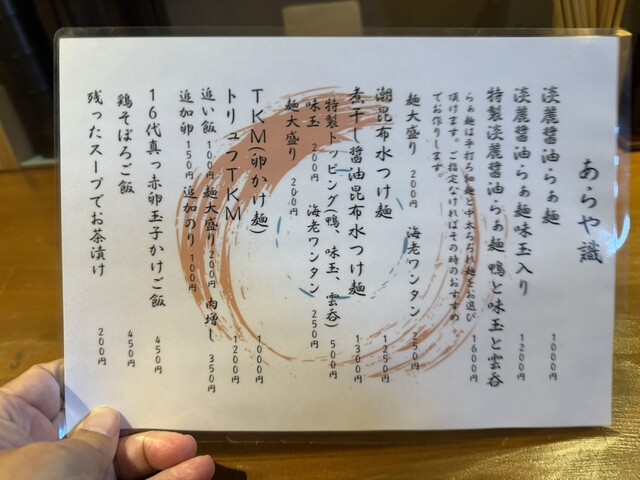 あらや識
淡麗醤油らぁ麺 1000円
淡麗醤油らぁ麺味玉入り 1200円
特製淡麗醤油らぁ麺 鴨と味玉と雲呑 1600円
らぁ麺は平打ち細麺と中太ちぢれ麺をお選び
頂けます。ご指定なければその時のおすすめ
でお作りします。
麺大盛り 200円 海老ワンタン 250円
潮昆布水つけ麺 1250円
煮干し醤油昆布水つけ麺 1300円
特製トッピング(鴨、味玉、雲呑) 500円
味玉 200円 海老ワンタン 250円
麺大盛り 200円
TKM(卵かけ麺) 1000円
トリュフTKM 1200円
追い飯 100円 麺大盛り 200円 肉増し 350円
追加卵 150円 追加のり 100円
16代真っ赤卵玉子かけご飯 450円
鶏そぼろご飯 450円
残ったスープでお茶漬け 200円